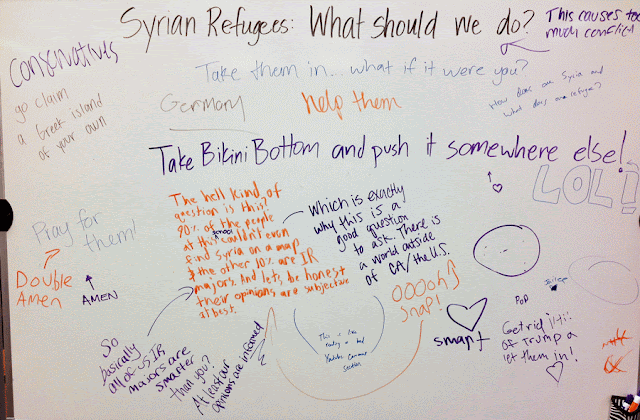 Syrian Refugees: What should we do?
This causes too
much conflict
Conservatives
go claim
a Greek island
of your own
Take them in... what if it were you?
Germany
help them
what does one refuge?
Take Bikini Bottom and push it somewhere else!
LOL!
Pray for
them!
Double
Amen
AMEN
The hell kind of
question is this?
90% of the people
at this school couldn't even
find Syria on a map
& the other 10% are IR
majors. And lets be honest
their opinions are subjective
at best.
Which is exactly
why this is a
good question
to ask. There is
a world outside
of CA/the U.S.
OOOOh
Snap!
So
basically
all of us IR
majors are
smarter
than you?
At least our
opinions are informed
This is like
reading a bad
Youtube comment
section
smapf
POP
Get rid
of Trump &
let them in!